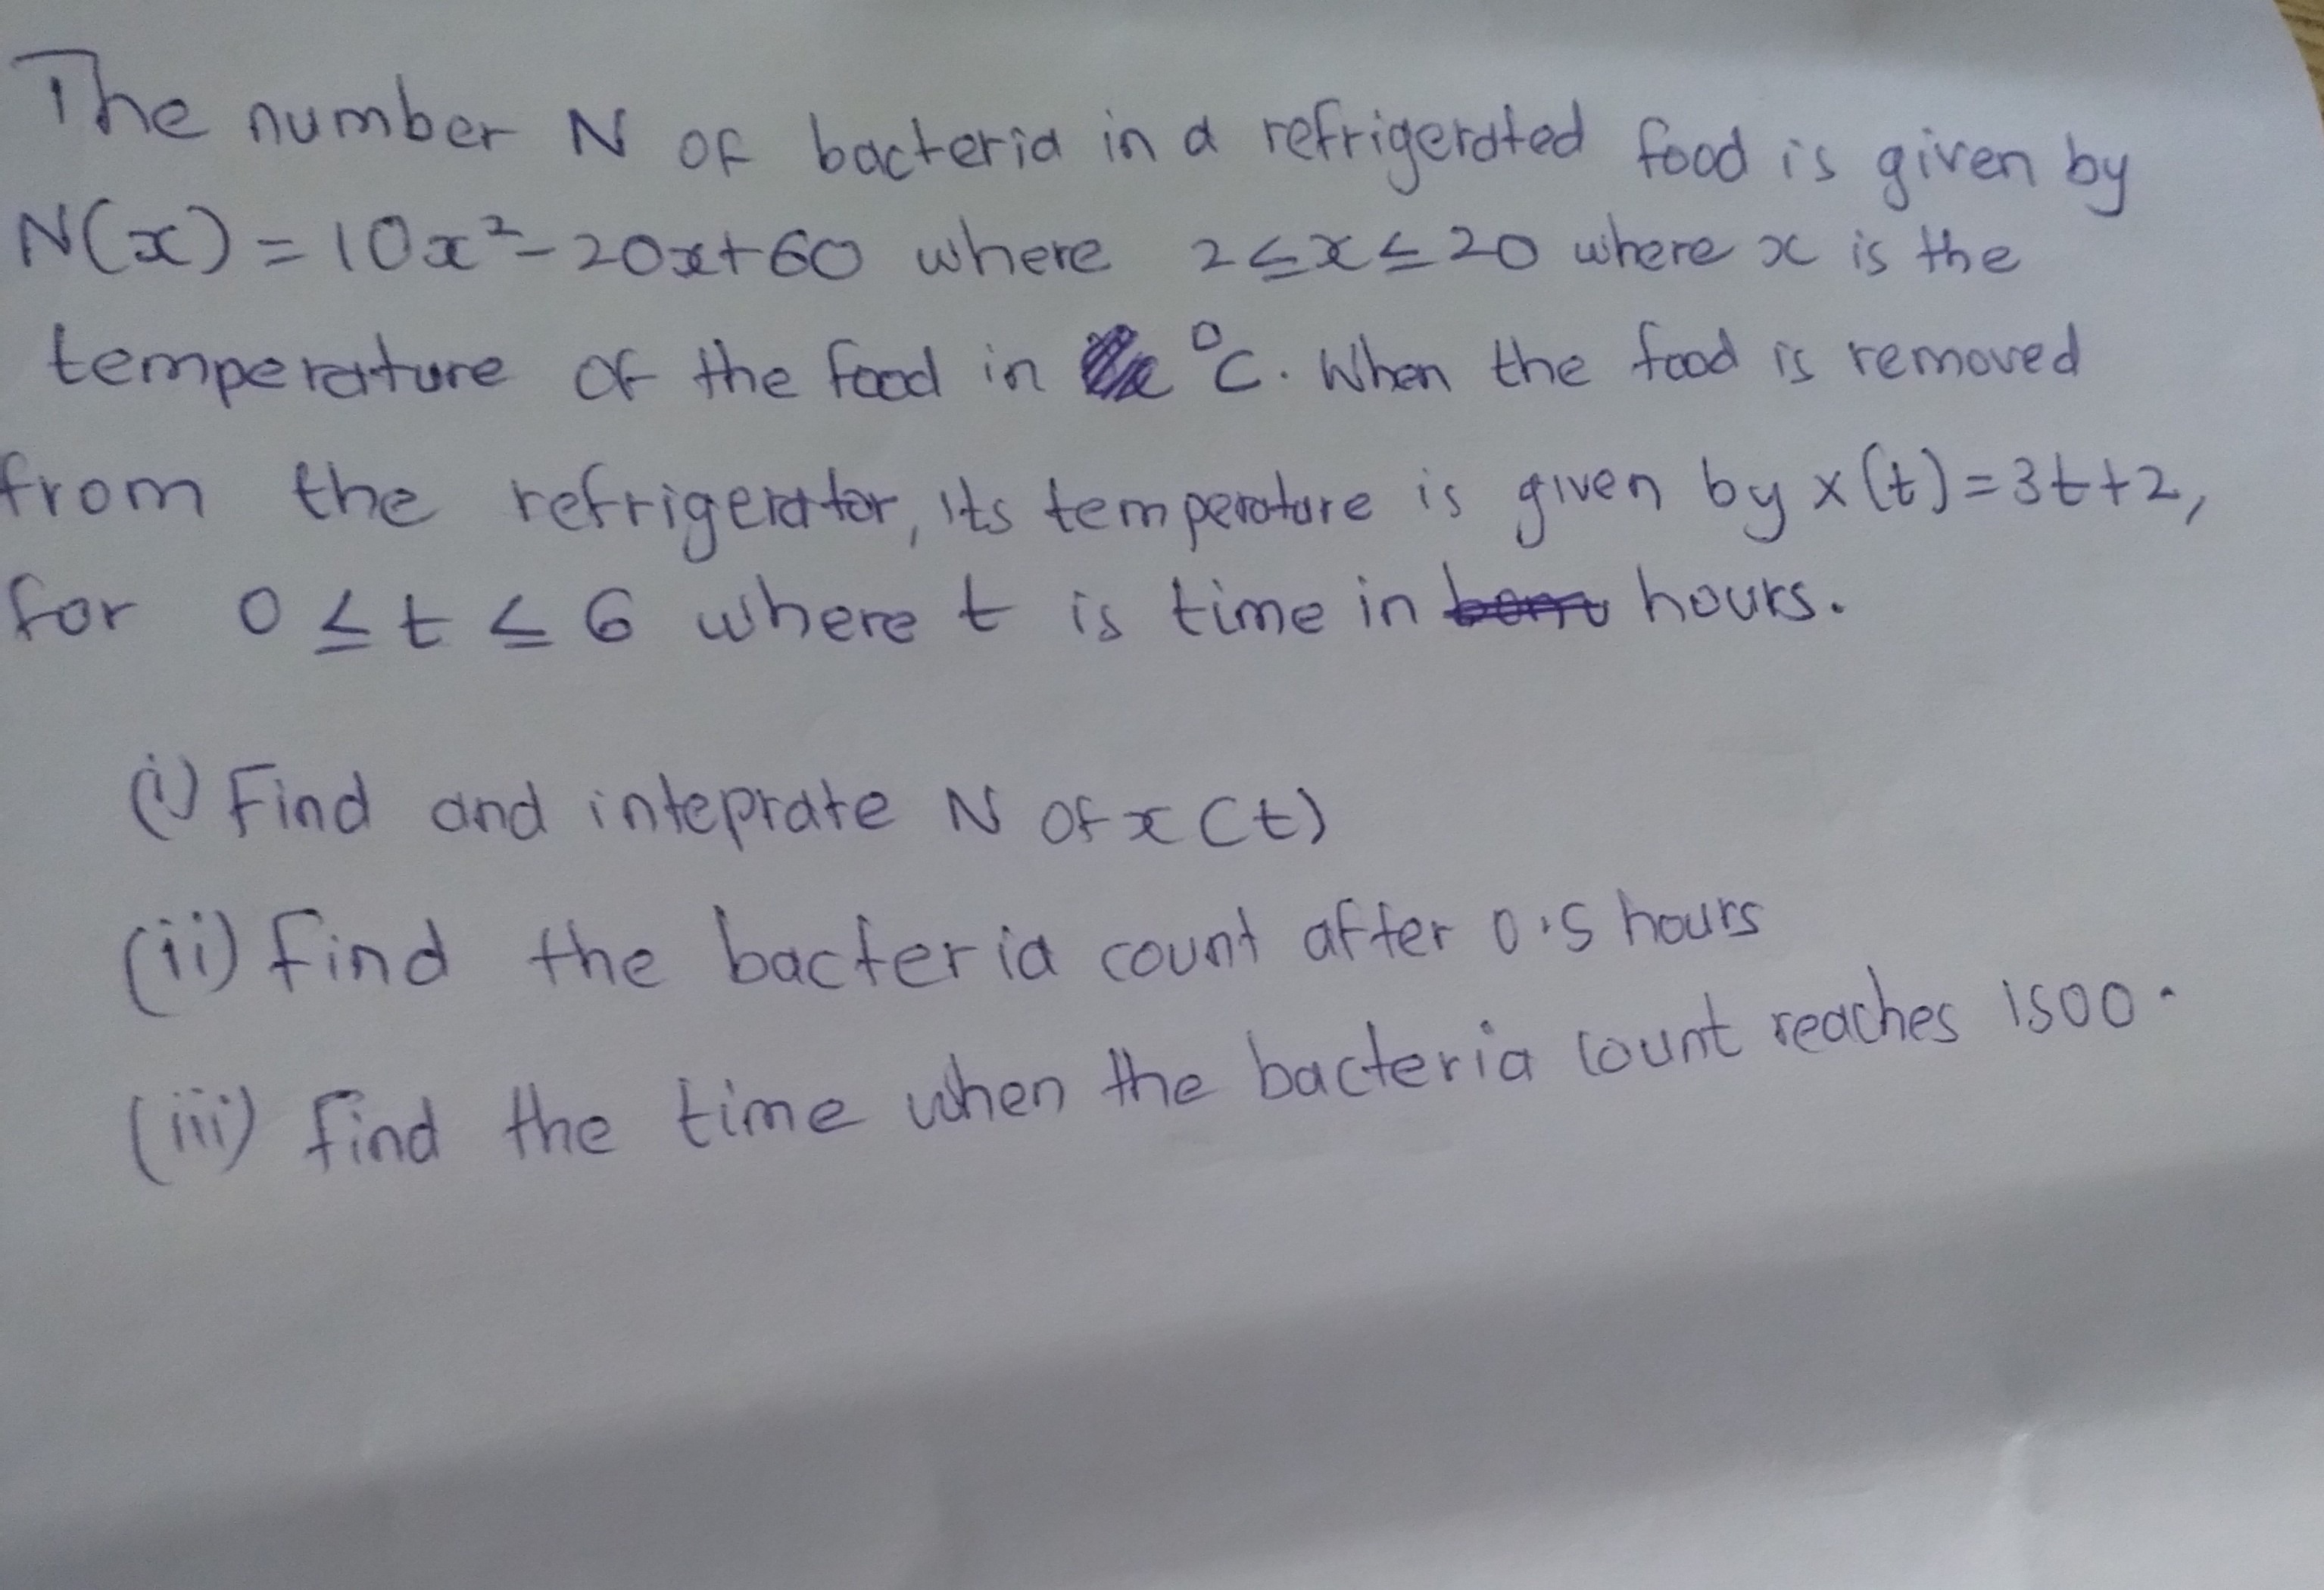 The number N of bacteria in a refrigerated food is given by
N(x) = 10x² - 20x + 60 where 2 ≤ x ≤ 20 where x is the
temperature of the food in °C. When the food is removed
from the refrigerator, its temperature is given by x(t) = 3t + 2,
for 0 ≤ t ≤ 6 where t is time in hours.
(i) Find and inteprate N of x(t)
(ii) find the bacteria count after 0.5 hours
(iii) find the time when the bacteria count reaches 1500.